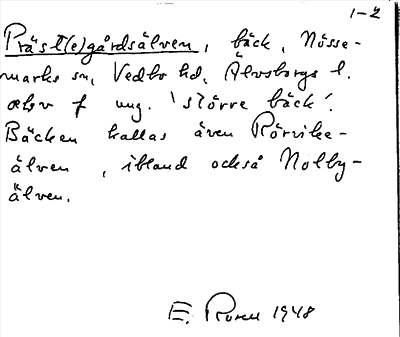 1-2
Präst(e)gårdsälven, bäck, Nösse-
marks sn, Vedbo hd, Älvsborgs l.
älv f ung. 'större bäck'.
Bäcken kallas även Rörvike-
älven, ibland också Nolby-
älven.
E. Rosen 1948